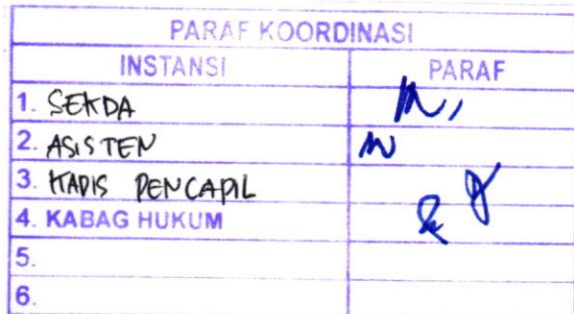 PARAF KOORDINASI
INSTANSI PARAF
1. SEKDA
2. ASISTEN
3. KADIS PENCAPIL
4. KABAG HUKUM
5.
6.